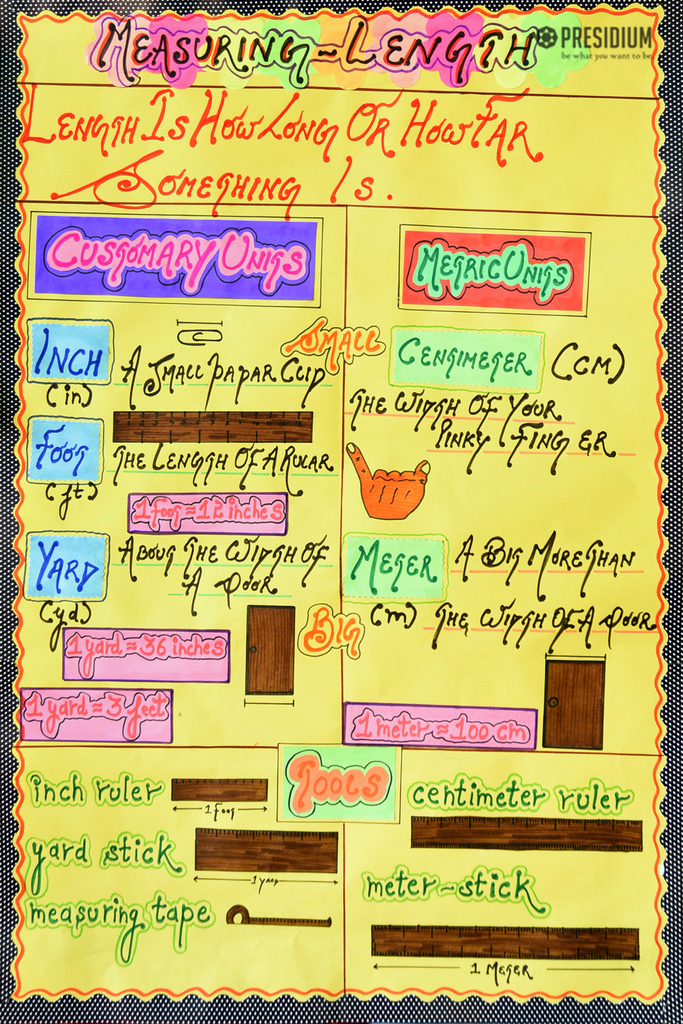 MEASURING-LENGTH
PRESIDIUM
be what you want to be
LENGTH IS HOW LONG OR HOW FAR
SOMETHING IS.
CUSTOMARY UNITS
METRIC UNITS
SMALL
INCH
(in)
A SMALL PAPAR CLIP
FOOT
(ft)
THE LENGTH OF A RULAR
1 foot = 12 inches
YARD
(yd)
ABOUT THE WIDTH OF
A DOOR
1 yard = 36 inches
1 yard = 3 feet
CENTIMETER (CM)
THE WIDTH OF YOUR
PINKY FINGER
METER
(m)
A BIG MORE THAN
THE WIDTH OF A DOOR
BIG
1 meter = 100 cm
TOOLS
inch ruler
1 FOOT
yard stick
1 YARD
measuring tape
centimeter ruler
meter-stick
1 METER